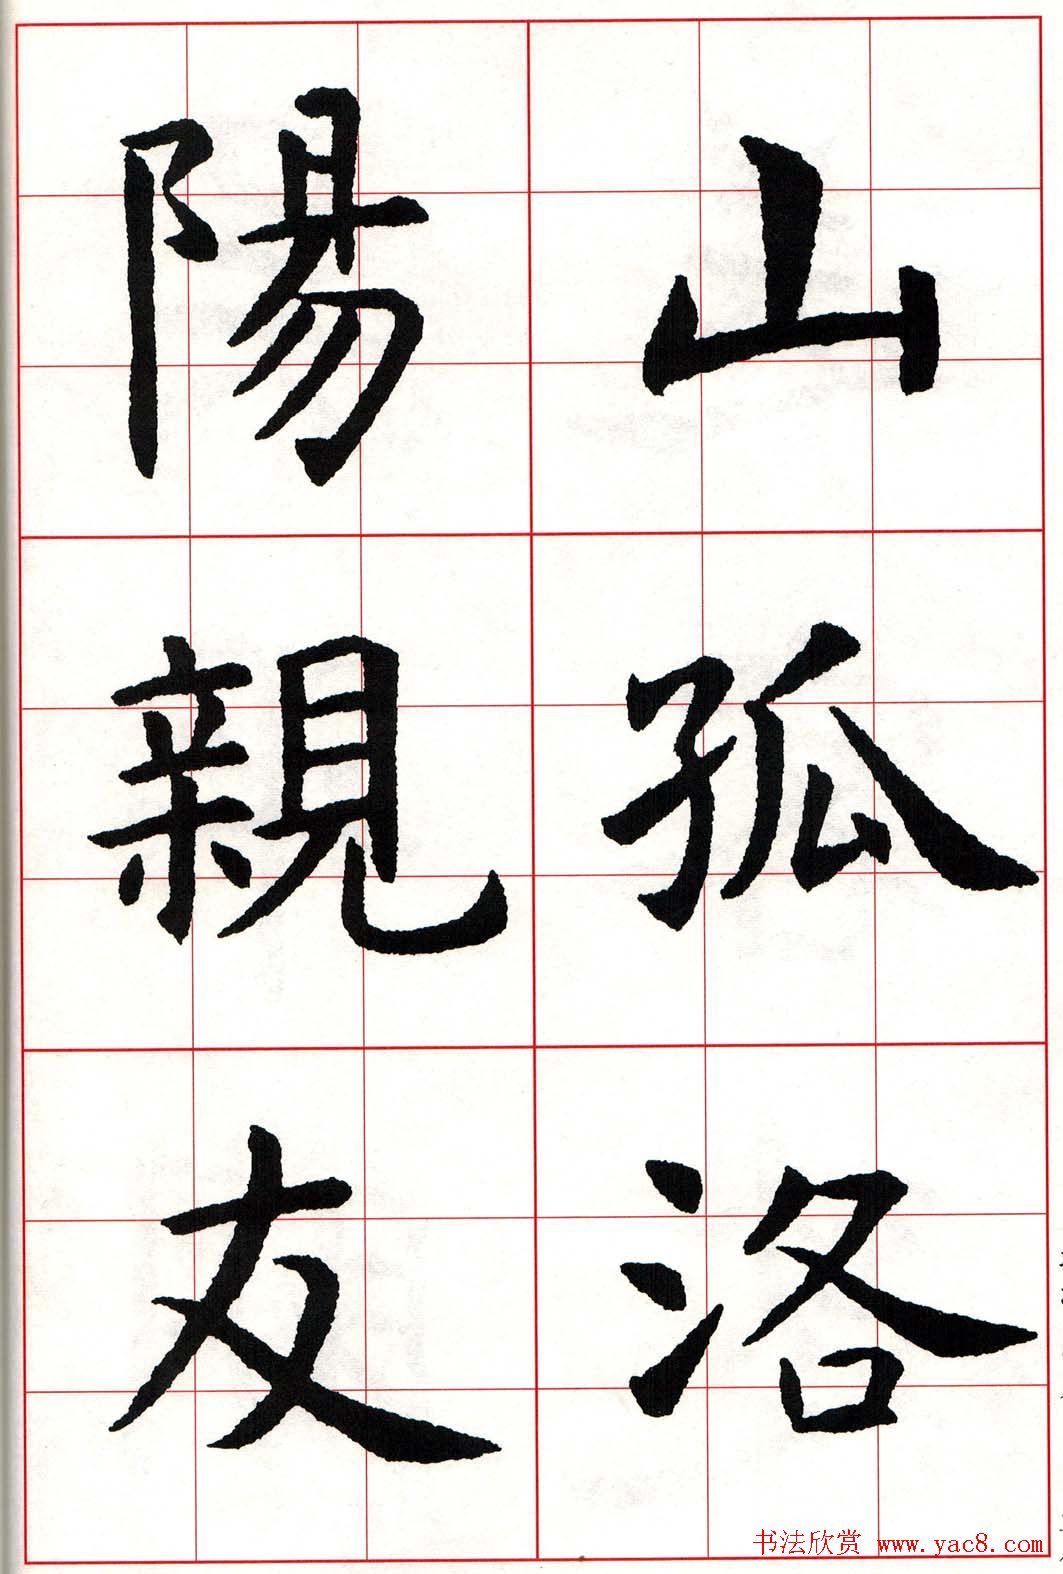 山孤洛
陽親友
书法欣赏 www.yac8.com